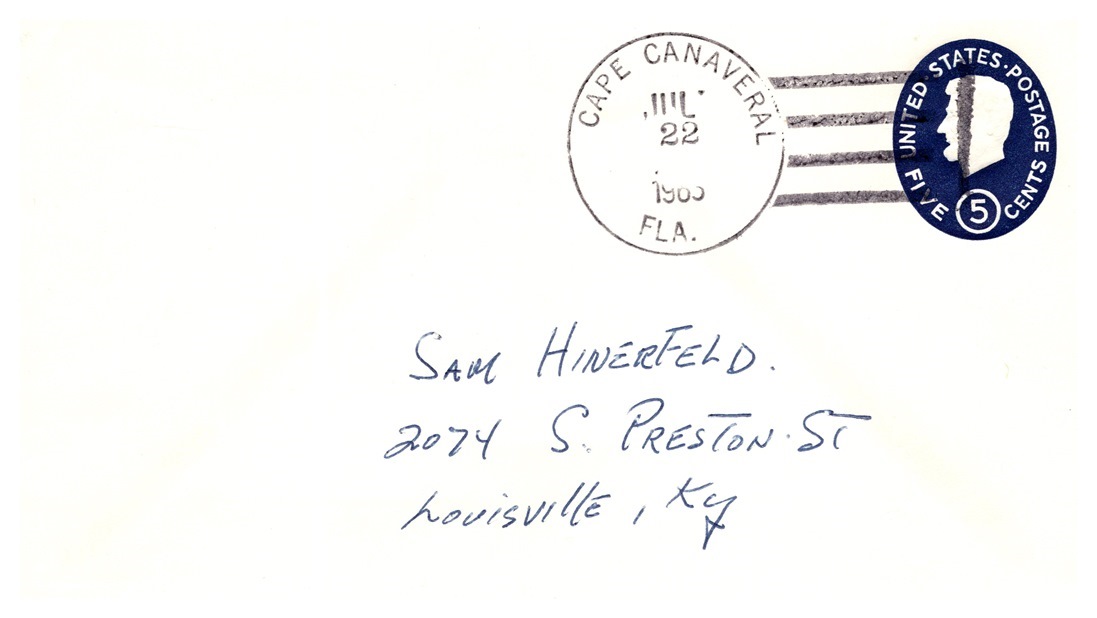 CAPE CANAVERAL
JUL
22
FLA.
UNITED STATES·POSTAGE
FIVE 5 CENTS
SAM HINERFELD.
2074 S. PRESTON. ST
Louisville, Ky